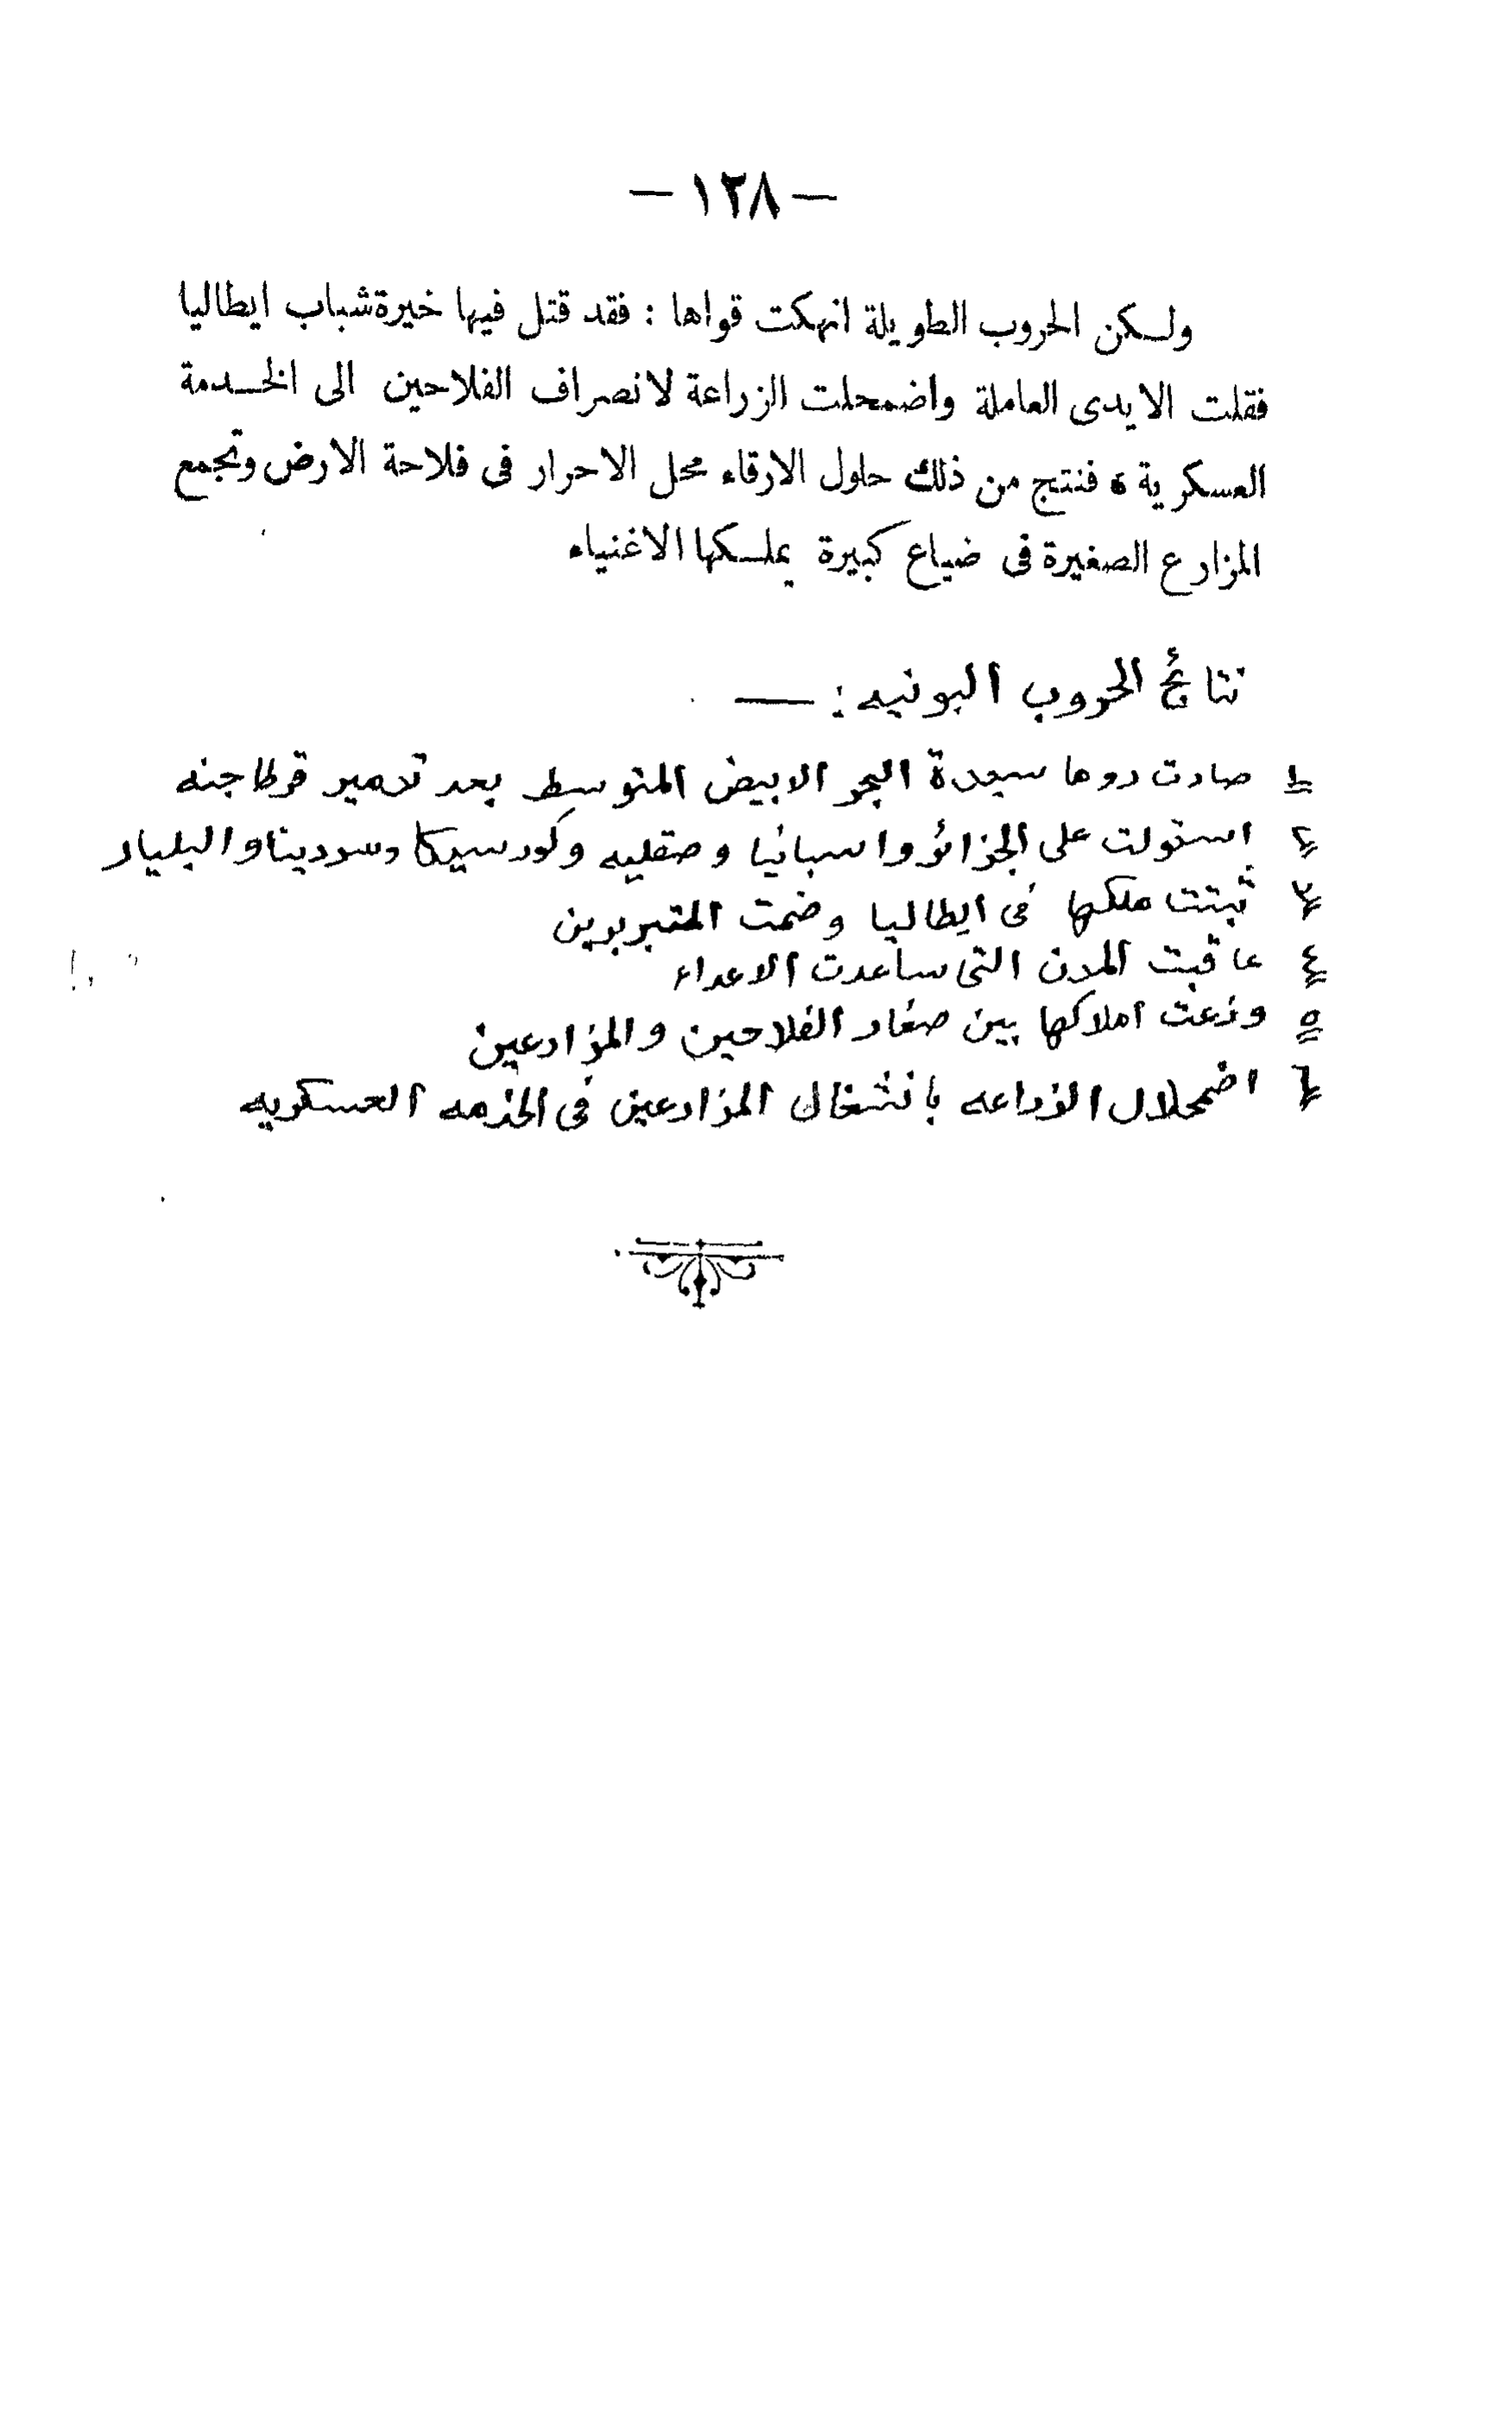 — ١٢٨ —
ولكن الحروب الطويلة انهكت قواها : فقد قتل فيها خيرة شباب ايطاليا
فقلت الايدى العاملة واضمحلت الزراعة لانصراف الفلاحين الى الخدمة
العسكرية ، فنتج من ذلك حلول الارقاء محل الاحرار فى فلاحة الارض وتجمع
المزارع الصغيرة فى ضياع كبيرة يملكها الاغنياء
نتائج الحروب البونيه : —
١ صارت روما سيدة البحر الابيض المتوسط بعد تدمير قرطاجنه
٢ استولت على الجزائر واسبانيا وصقليه وكورسيكا وسردينا والبليار
٣ ثبتت ملكها فى ايطاليا وضمت المتبربرين
٤ عاقبت المدن التى ساعدت الاعداء
٥ وزعت املاكها بين صغار الفلاحين والمزارعين
٦ اضمحلال الزراعه بانشغال المزارعين فى الخدمه العسكريه